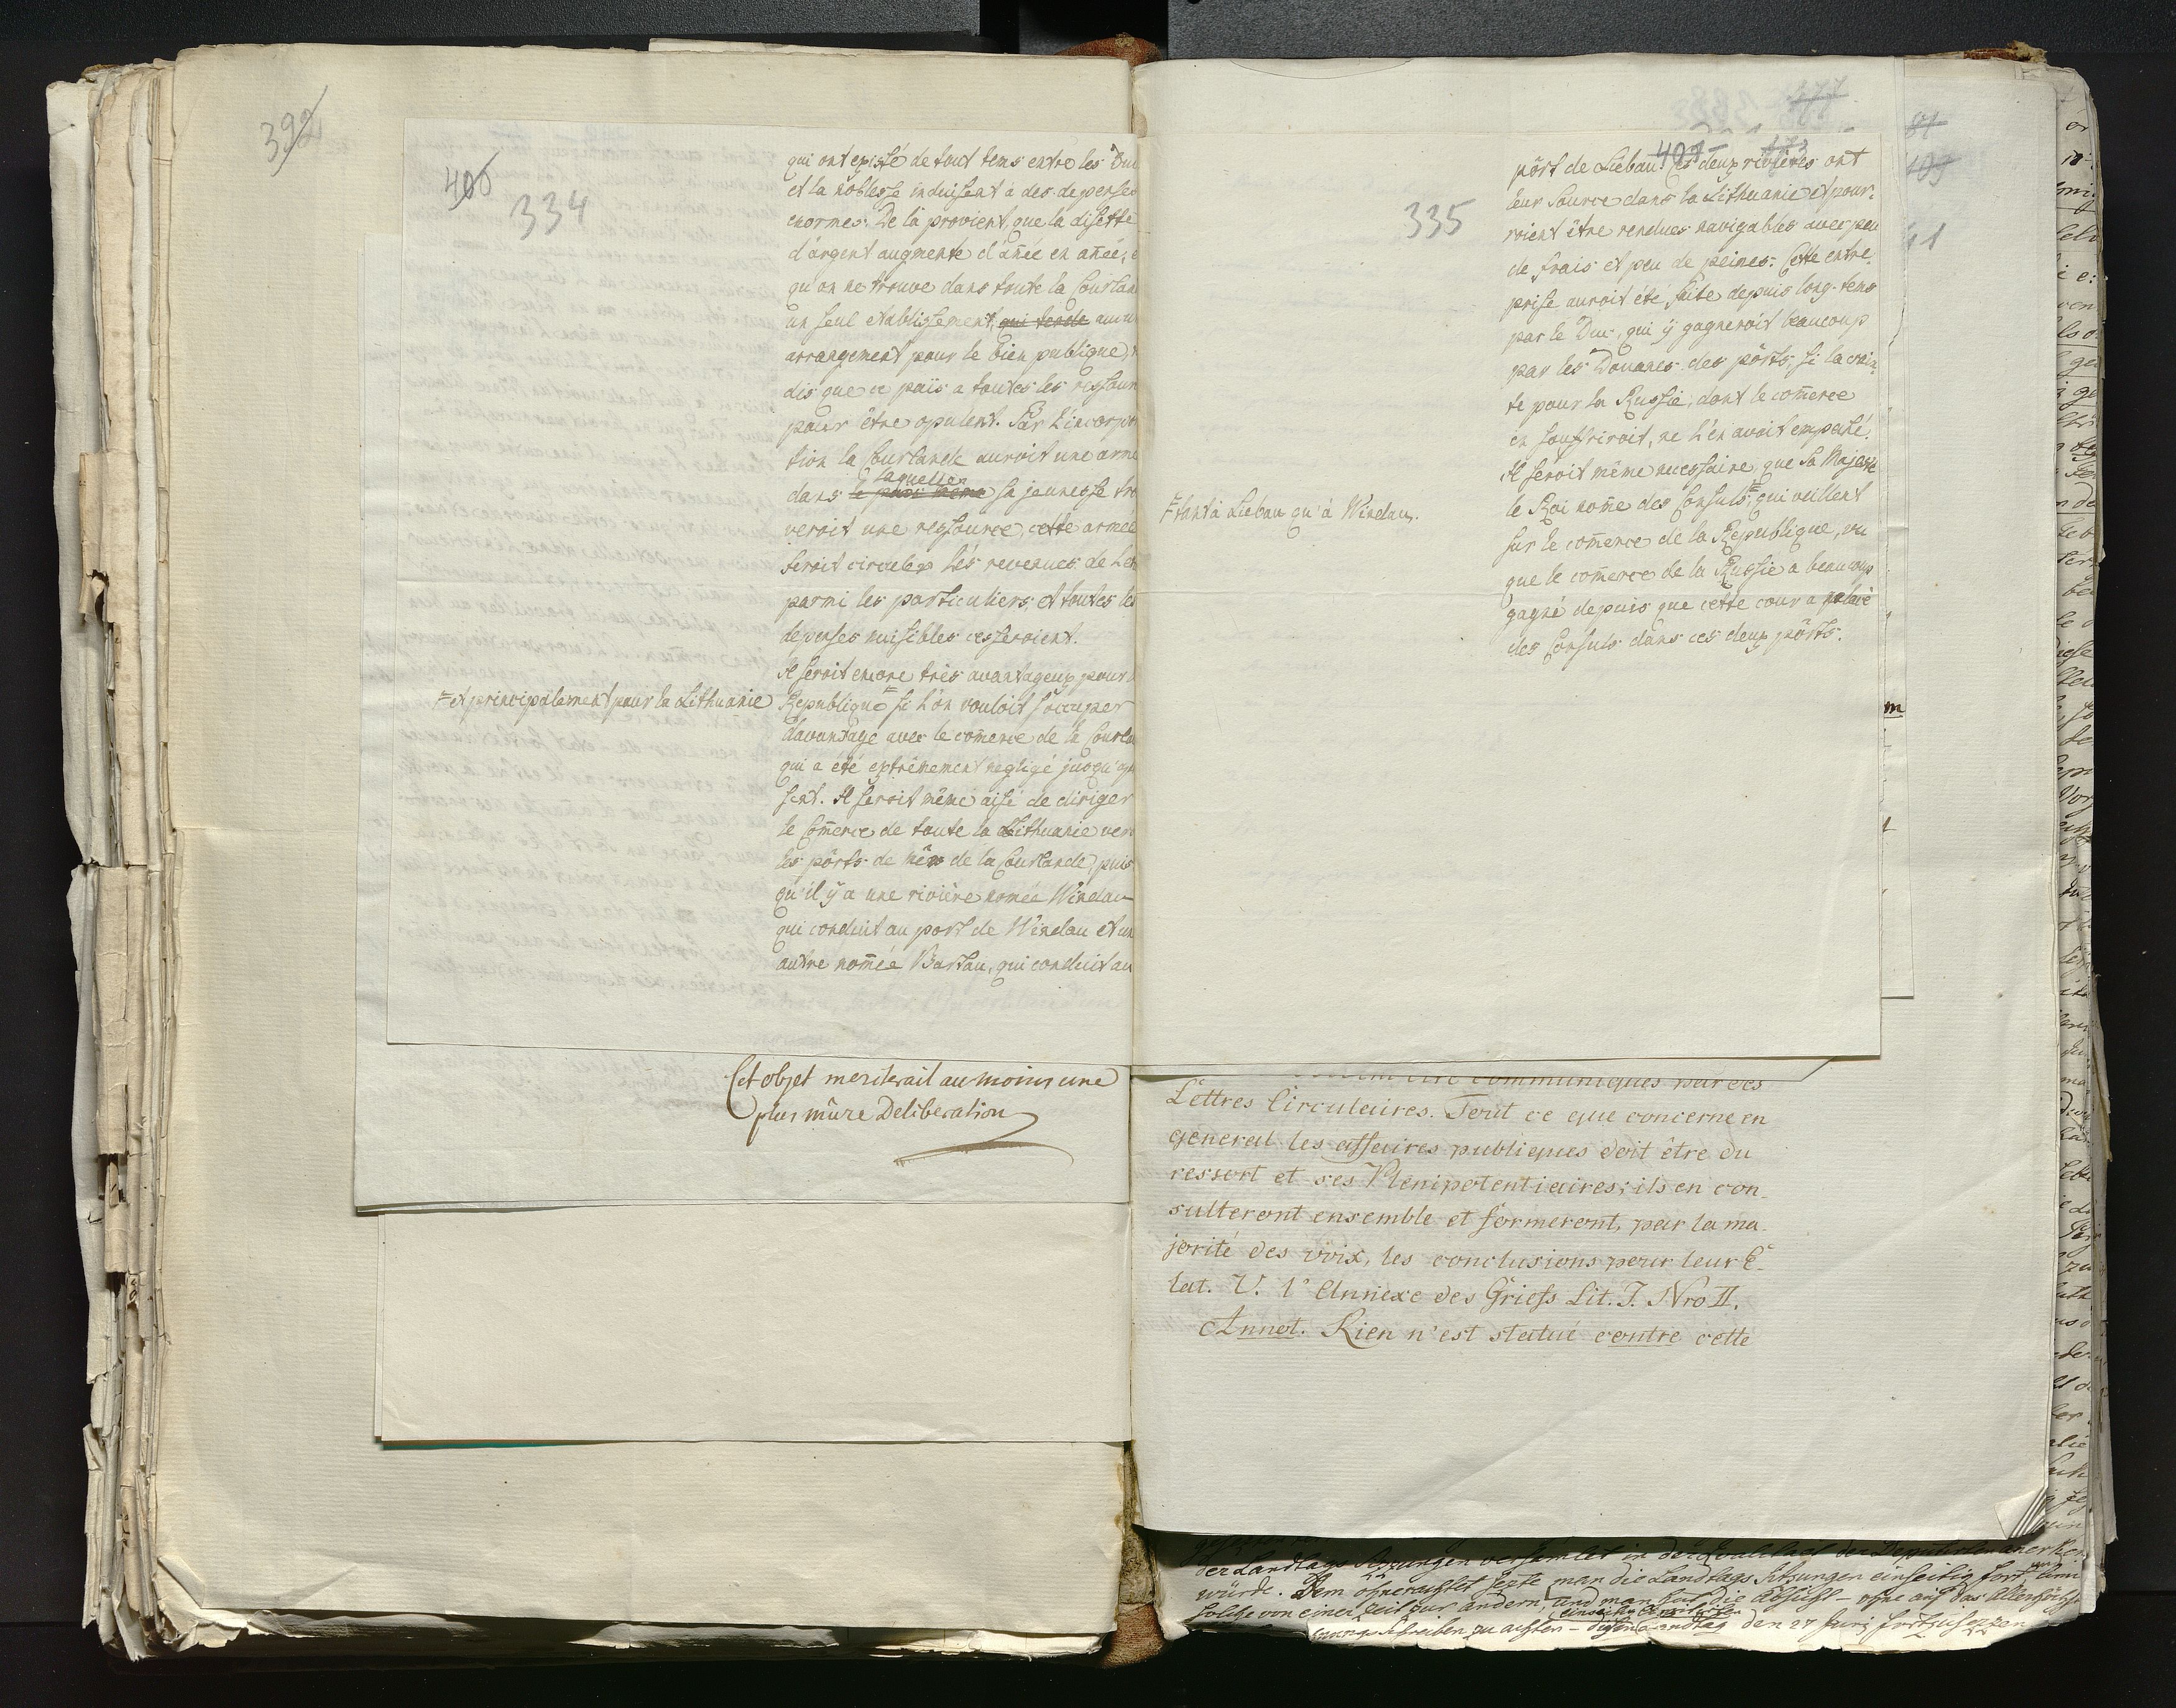 392
400
334
qui ont existé de tout tems entre les Duc
et la noblesse induisent à des depenses
enormes. De là provient, que la disette
d'argent augmente d'anée en anée,
qu'on ne trouve dans toute la Courlan
un seul etablissement, qui tende aucun
arrangement pour le bien publique,
dis que ce païs a toutes les ressour
pour être opulent. Par l'incorpo
tion la Courlande auroit une armé
laquelle
dans le païs même sa jeunesse tro
veroit une ressource, cette armée
feroit circuler les revenues de l'et
parmi les particuliers et toutes les
depenses nuisibles cesseroient.
Il seroit encore très avantageux pour
= et principalement pour la Lithuanie
Republique = si l'on vouloit s'occuper
davantage avec le comerce de la Courla
qui a été extrêmement negligé jusqu'apre
sent. Il seroit même aisé de diriger
le Comerce de toute la Lithuanie ver
les pôrts de mêr de la Courlande, puis
qu'il y a une riviére nomée Windau
qui conduit au port de Windau et un
autre nomée Bartau, qui conduit au
Cet objet meriterait au moins une
plus mûre Deliberation
401
173
335
pôrt de Liebau. Ces deux riviéres ont
leur source dans la Lithuanie et pour-
roient être rendues navigables avec peu
de frais et peu de peines. Cette entre-
prise auroit été faite depuis long-tems
par le Duc, qui y gagneroit beaucoup
par les Douanes des pôrts, si la crain
te pour la Russie, dont le comerce
en souffriroit, ne l'en avoit empeché.
Il seroit même necessaire, que Sa Majesté
le Roi nome des Consuls = qui veillent
= tant à Liebau qu'à Windau.
sur le comerce de la Republique, vu
que le comerce de la Russie a beaucoup
gagné depuis que cette cour a placé
des Consuls dans ces deux pôrts.
communiqués par des
Lettres Circulaires. Tout ce que concerne en
general les affaires publiques doit être du
ressort et ses Plenipotentiaires; ils en con-
sulteront ensemble et formeront, par la ma-
jorité des voix, les conclusions pour leur E-
tat. V. l'Annexe des Griefs Lit. I. Nro II.
Annot. Rien n'est statué contre cette
würde. Dem ohnerachtet sezte man die Landtags Sitzungen einseitig fort,
solche von einer Zeit zur andern, und man hat die Absicht - ohne auf das Allerhöchste
den 27 Juny fortzusezzen